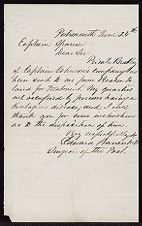 Portsmouth June 24th
Captain
Dear Sir
Private Bradley
of Captain Colemans company has
been sent to me from Reston to
care for treatment. My quarters
are occupied by persons having a
Contagious disease, and I shall
thank you for some instructions
as to the disposition of him
Very respectfully
Edward
Surgeon of the Post